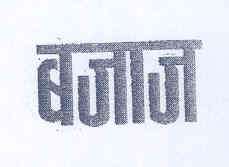 बजाज